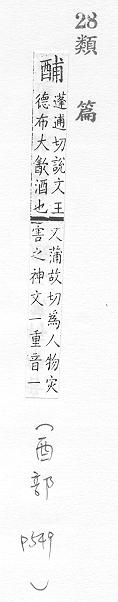 28 類篇
酺
蓬逋切說文王
德布大歠酒也
又蒲故切爲人物灾
害之神文一重音一
(酉部 p549)